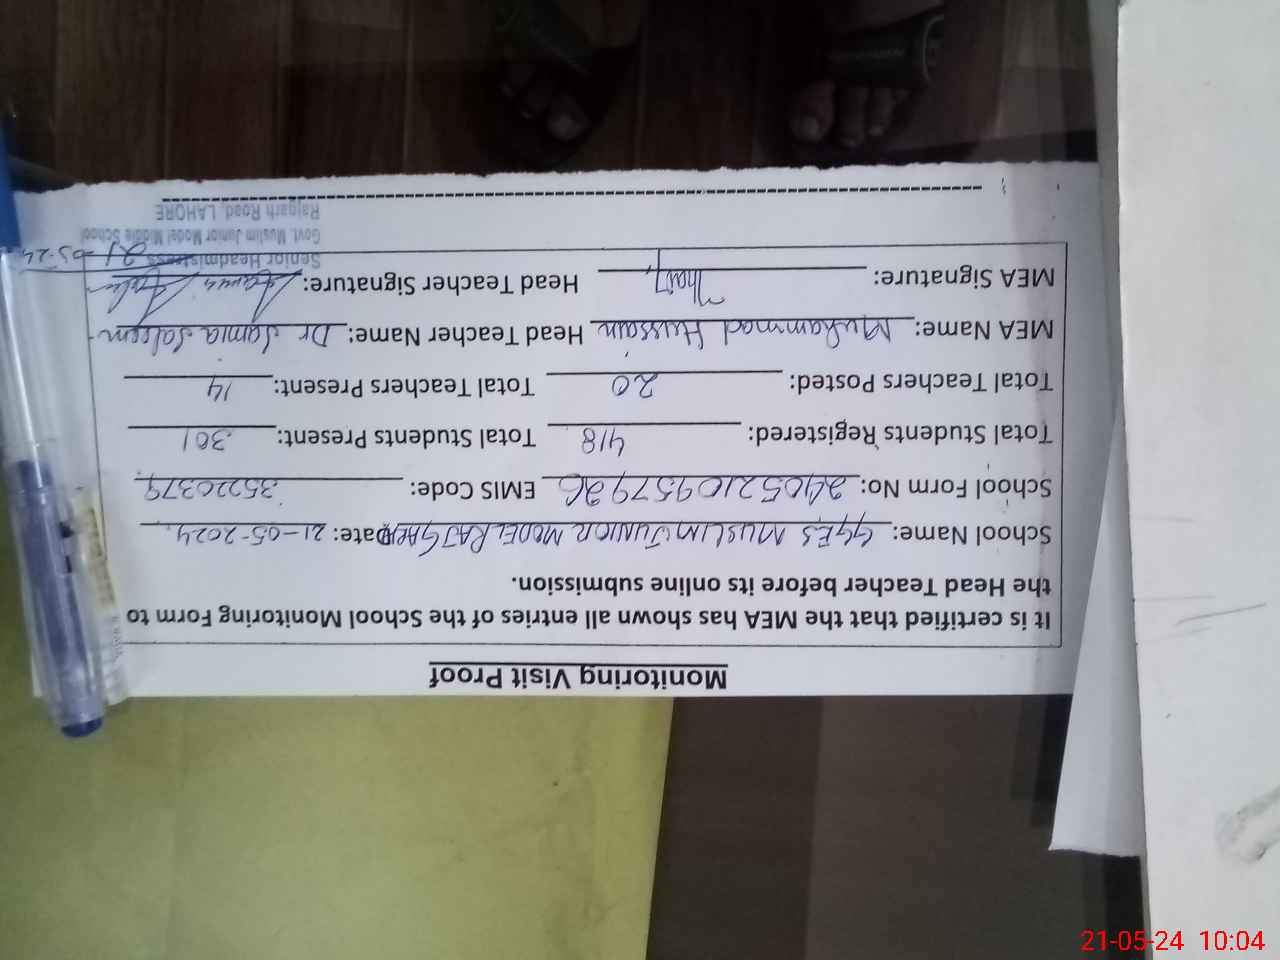 Monitoring Visit Proof
It is certified that the MEA has shown all entries of the School Monitoring Form to
the Head Teacher before its online submission.
School Name: GGES MUSLIM JUNIOR MODEL RAJGARH Date: 21-05-2024
School Form No: EMIS Code: 35220379
Total Students Registered: 418 Total Students Present: 301
Total Teachers Posted: 20 Total Teachers Present: 14
MEA Name: Muhammad Hussain Head Teacher Name: Dr Samia Saleem
MEA Signature: Head Teacher Signature:
21-05-24
Senior Headmistress
Govt. Muslim Junior Model Middle School
Rajgarh Road, LAHORE
21-05-24 10:04